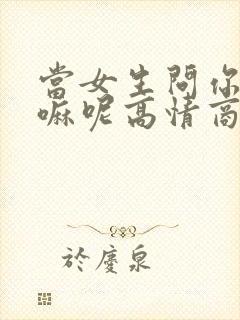 當女生問你
嘛呢高情商
於慶泉